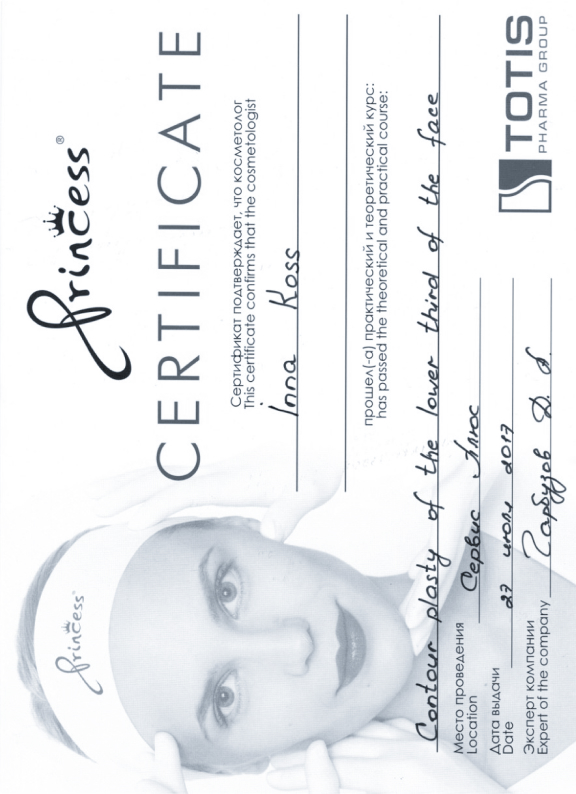 Princess®
CERTIFICATE
Сертификат подтверждает, что косметолог
This certificate confirms that the cosmetologist
Inna Koss
прошел(-а) практический и теоретический курс:
has passed the theoretical and practical course:
Contour plasty of the lower third of the face
Место проведения
Location
Сервис Плюс
Дата выдачи
Date
27 июля 2017
Эксперт компании
Expert of the company
Гарбузов Д.
TOTIS
PHARMA GROUP
Princess®